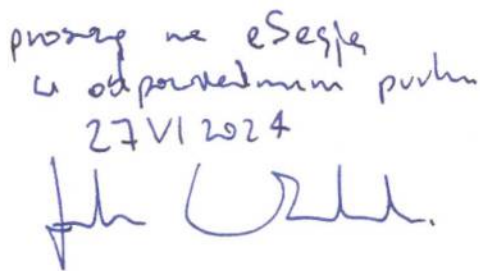 proszę na eSesję
w odpowiednim punkcie
27 VI 2024